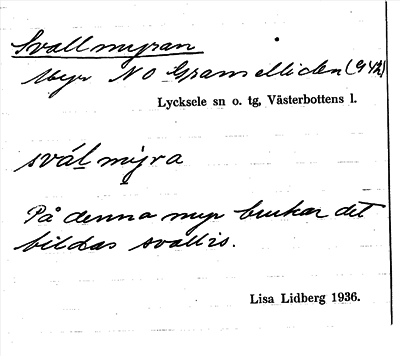 Svallmyran
Myr N O Granselliden (G4h)
Lycksele sn o. tg, Västerbottens l.
svál mỳra
På denna myr brukar det
bildas svallis.
Lisa Lidberg 1936.